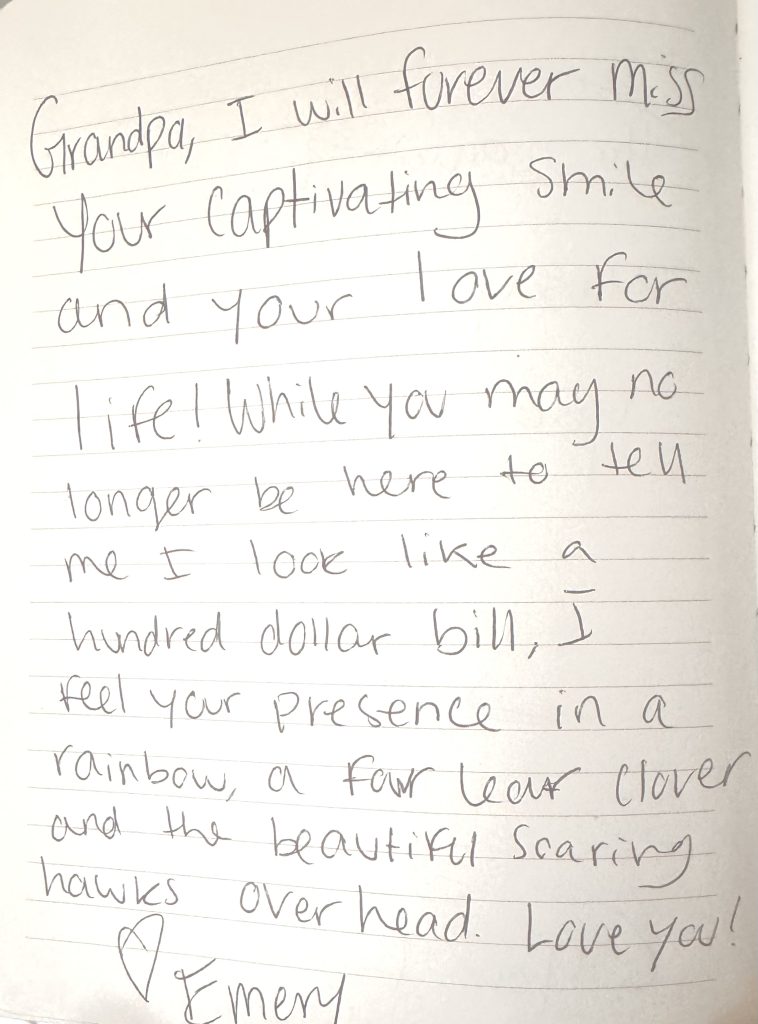 Grandpa, I will forever miss
your captivating smile
and your love for
life! While you may no
longer be here to tell
me I look like a
hundred dollar bill, I
feel your presence in a
rainbow, a four leaf clover
and the beautiful soaring
hawks overhead. Love you!
♡ Emery